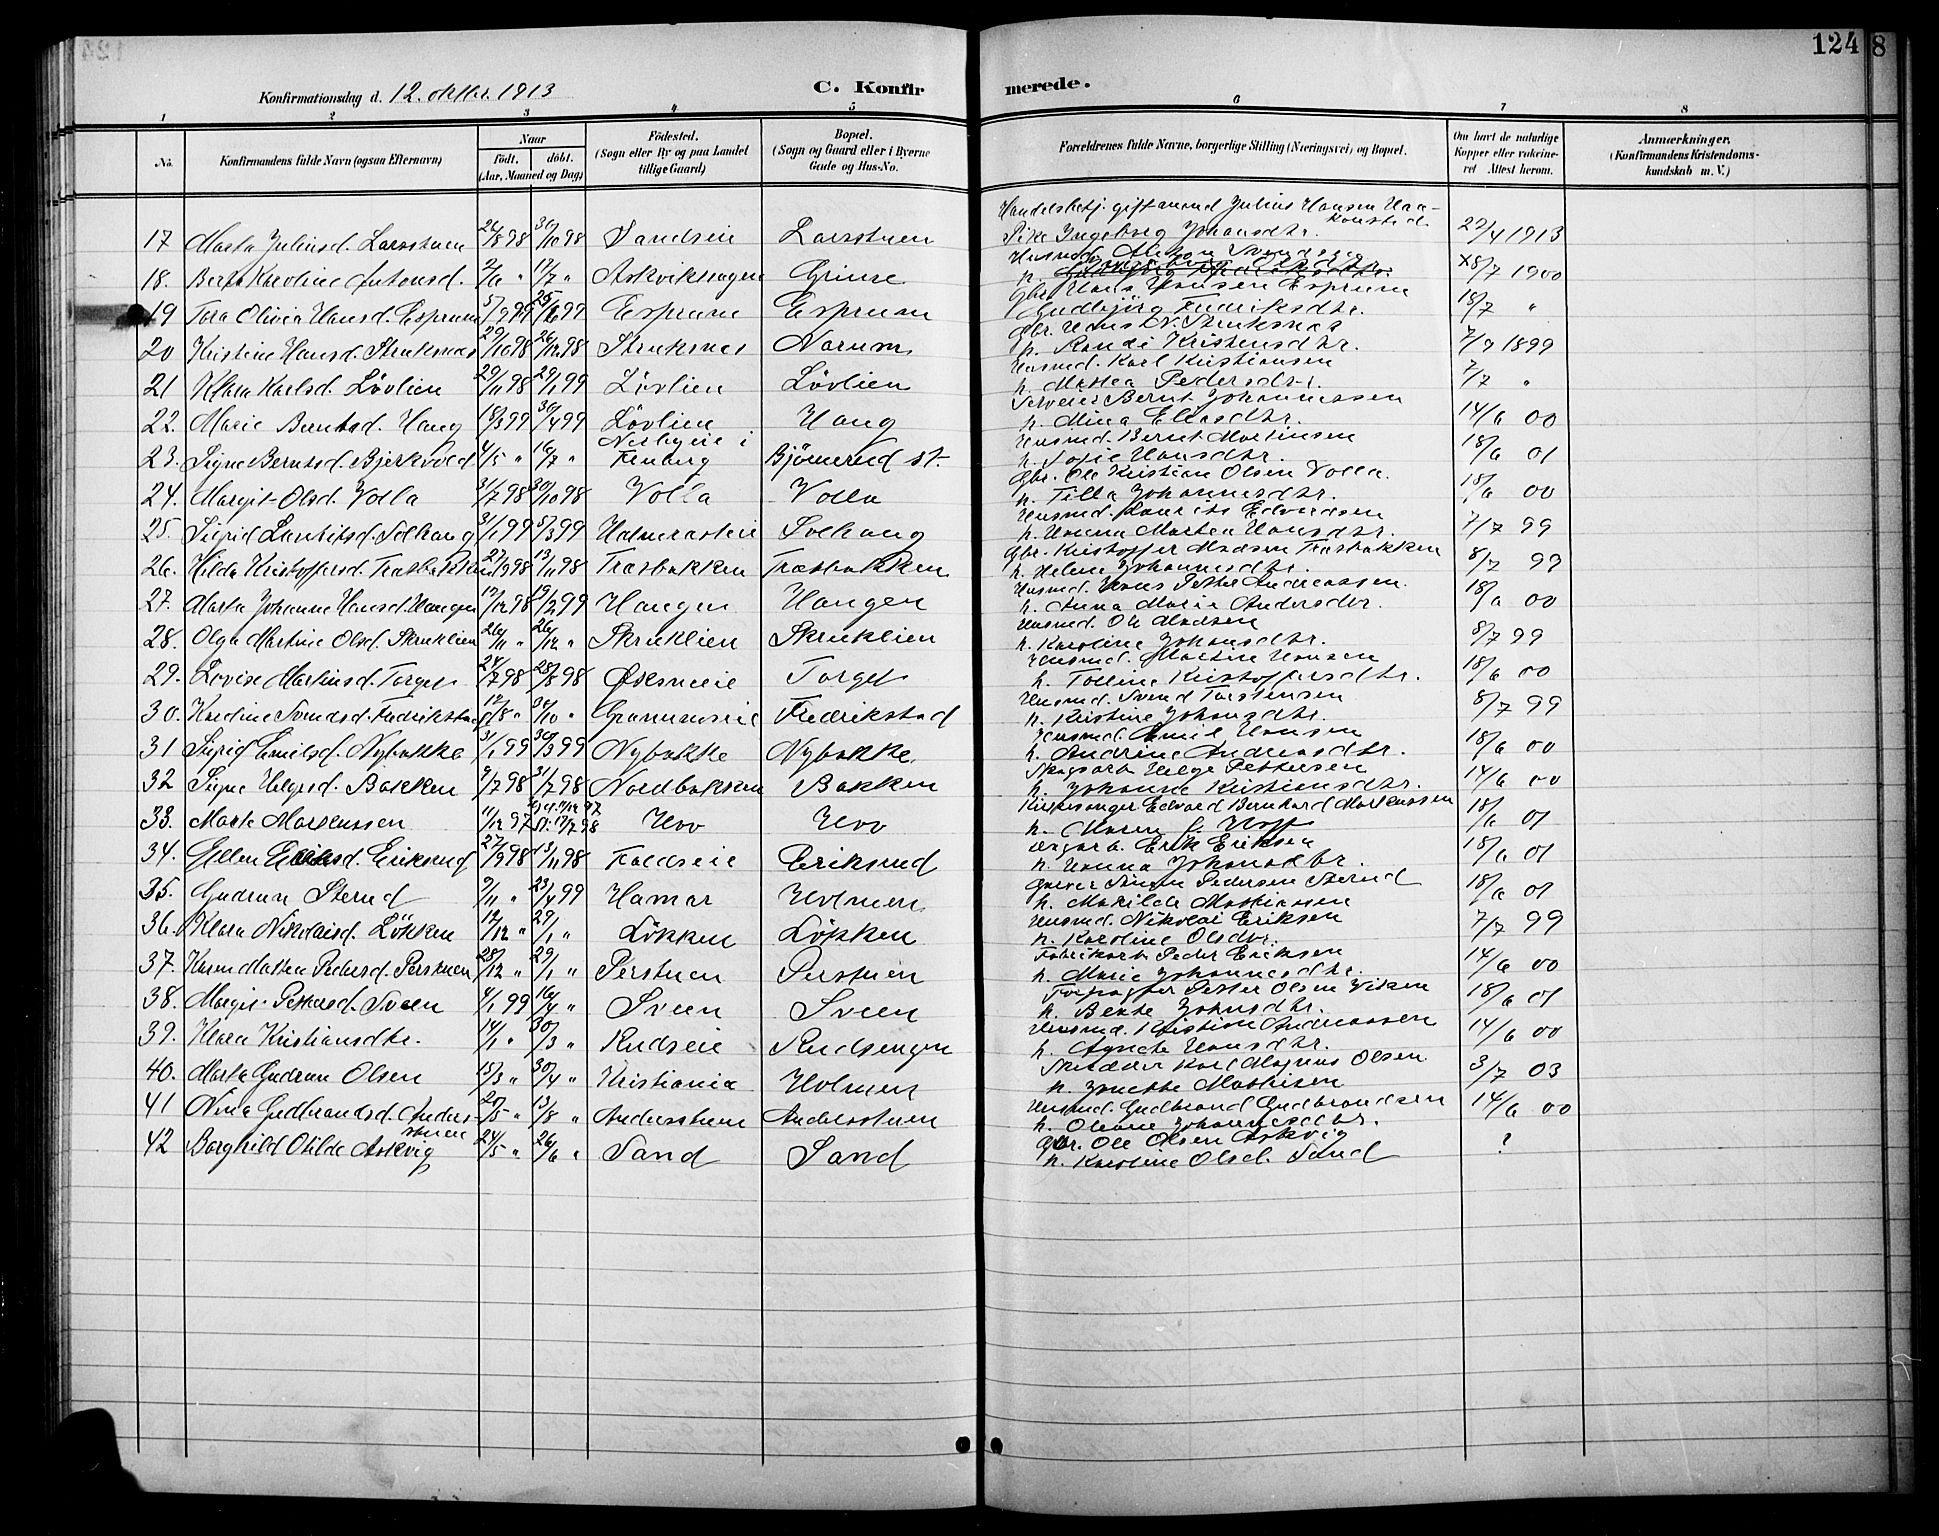 124 8
Konfirmationsdag d. 12. oktbr. 1913
C. Konfir merede.
1 2 3 4 5 6 7 8
No. Konfirmandens fulde Navn (ogsaa Efternavn) Naar födt. döbt. (Aar, Maaned og Dag) Födested. (Sogn eller By og paa Landet tillige Gaard) Bopæl. (Sogn og Gaard eller i Byerne Gade og Hus-No. Forældrenes fulde Navne, borgerlige Stilling (Næringsvei) og Bopæl. Om havt de naturlige Kopper eller vakcineret Attest herom. Anmærkninger. (Konfirmandens Kristendomskundskab m. V.)
Handelsbetj. gift mand Julius Hansen Haakonstad
17 Marta Juliusd. Larsstuen 26/8 98 30/10 98 Sandseie Larsstuen Pike Ingeborg Johansdtr. 22/4 1913
Husmd. Anton
18. Berta Karoline Antonsd. 2/6 " 17/7 " Askvikhagen Grinse h. 18/7 1900
Gbr. Hans Hansen Esprume
19 Tora Olivia Hansd. Esprume 5/ 99 25/6 99 Esprume Espruem Gudbjörg Fredriksdtr. 18/7 "
Gbr. Hans N. Struksnæs
20 Kristine Hansd. Struksnæs 29/10 98 26/12 98 Struksnes Narum h. Randi Kristensdtr. 7/7 1899
Husmd. Karl Kristiansen
21 Klara Karlsd. Lövlien 29/11 98 29/1 99 Lövlien Lövlien h. Mathea Pedersdtr. 7/7 "
Bernt Johannessen
22. Marie Berntsd. Haug 18/3 99 30/4 99 Lövlien Haug h. Mina Eliasdtr. 14/6 00
Husmd. Bernt Martinsen
23. Signe Berntsd. Bjerkvold 4/5 " 16/7 " Nesbyeie i Fenberg Björnerud st. h. Sofie Hansdtr. 18/6 01
Gbr. Ole Kristian Olsen Volla.
24. Margit Olsd. Volla 31/7 98 30/10 98 Volla Volla h. Tilla Johannesdtr. 18/6 00
Husmd. Laurits Edvardsen
25. Sigrid Lauritsd. Solhaug 31/1 99 5/3 99 Solhaug h. Hanna Martea Hansdtr. 7/7 99
Gbr. Kristoffer Madsen Træsbakken
26. Hilda Kristoffersd. Træsbakken 27/9 98 13/11 98 Træsbakken Træsbakken h. Helene Johannesdtr. 8/7 99
Husmd. Hans Petter Andreassen.
27. Marta Johanne Hansd. Haugen 17/12 98 19/2 99 Haugen Haugen h. Anna Marie Andersdtr. 18/6 00
Husmd. Ole Madsen
28. Olga Martine Olsd. Skruklien 26/11 " 26/12 " Skruklien Skruklien h. Karoline Johansdtr. 8/7 99
Husmd. Martin Hansen
29. Lovise Martinsd. Torget 24/7 98 28/8 98 Øksneeie Torget h. Tolline Kristoffersdtr. 18/6 00
Husmd. Svend Torstensen
30. Kardine Svendsd. Fredrikstad 12/8 " 24/10 " Fredrikstad h. Kristine Johansdtr. 8/7 99
Husmd. Emil Hansen
31 Sigrid Emilsd. Nybakke 31/1 99 30/3 99 Nybakke Nybakke. h. Andrine Andreasdtr. 18/6 00
Skogsarb. Helge Pettersen
32 Signe Helgesd. Bakken 9/7 98 31/7 98 Nordbakken Bakken h. Johanne Kristiansdtr. 14/6 00
Kirkesanger Edvard Bernhard Marteussen
33. Marta Marteussen 11/12 97 Hj.d. 11/12 97 st. 17/7 98 Hov Hov h. Maren f. Hoff 18/6 01
Erik Eriksen
34. Ellen Eriksd. Eriksrud 27/9 98 13/11 98 Faldseie Eriksrud h. Hanna Johansdtr. 18/6 01
Garver Simen Pedersen Sterud
35. Gudrun Sterud 9/11 " 23/4 99 Hamar Holmen h. Matilde Mathiassen 18/6 01
Husmd. Nikolai Eriksen
36. Klara Nikolaisd. Lökken 12/12 " 29/1 " Lökken Lökken h. Karoline Olsdtr. 7/7 99
Fabrikarb. Peder Eriksen
37. Karen Mattea Pedersd. Perstuen 28/12 " 29/1 " Perstuen Perstuen h. Marie Johannesdtr. 14/6 00
Forpagter Petter Olsen Visken
38. Margit Pettersd. Sveen 4/1 99 16/4 " Sveen Sveen h. Berte Johnsdtr. 18/6 01
Husmd. Kristian Andreassen
39. Klara Kristiansdtr. 14/1 " 30/3 " Rudseie Rudsengen h. Agnete Hansdtr. 14/6 00
Skrædder Karl Magnus Olsen
40. Marta Gudrun Olsen 15/3 " 30/4 " Kristiania Holmen h. Jonette Mathisen 3/7 03
Husmd. Gudbrand Gudbrandsen
41 Nina Gudbrandsd. Andersstuen 27/5 " 13/8 " Andersstuen Andersstuen h. Oleane Johannesdtr. 14/6 00
Gbr. Ole Olsen Askvig
42 Borghild Otilde Askvig 24/5 " 26/6 " Sand Sand h. Karoline Olsd. Sand ?